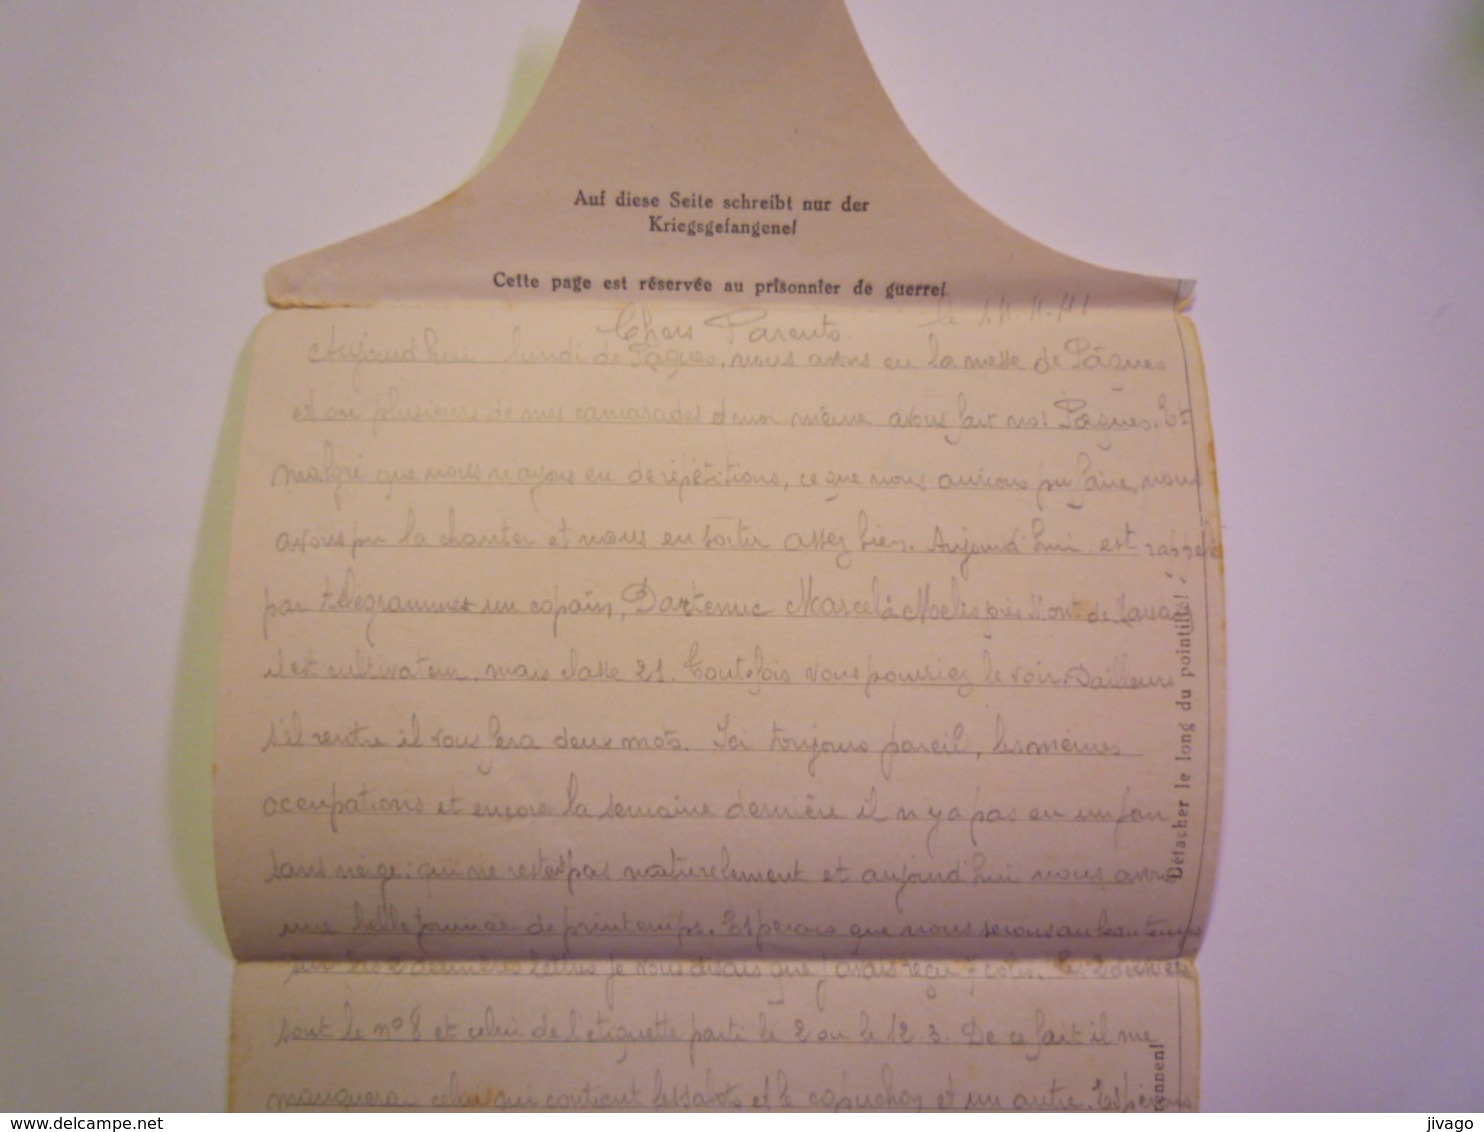 Auf diese Seite schreibt nur der
Kriegsgefangene!
Cette page est réservée au prisonnier de guerre!
le 14.4.41
Chers Parents
Aujourd'hui lundi de Pâques, nous avons eu la messe de Pâques
et on plusieurs de mes camarades et moi même avons fait nos Pâques. Et
malgré que nous n'ayons eu de répétitions, ce que nous aurions pu faire, nous
avons pu la chanter et nous en sortir assez bien. Aujourd'hui, est rappelé
par télégramme un copain, Dartenuc Marcel à Moelis près Mont de Marsan
il est cultivateur, mais classe 21. Toutefois vous pourriez le voir. Dailleurs
s'il rentre il vous fera deux mots. Ici toujours pareil, les mêmes
occupations et encore la semaine dernière il n'y a pas eu un jour
sans neige : qui ne reste pas naturellement et aujourd'hui nous avons
une belle journée de printemps. Espérons que nous serons au beau temps
sur les 2 dernières lettres je vous disais que j'avais reçu 7 colis. Les 2 derniers
sont le n° 8 et celui de l'étiquette parti le 2 ou le 12 3. De ce fait il me
manquera celui qui contient les sabots et le capuchon et un autre. Espérons
Détacher le long du pointillé!
trennen!
delcampe.net
jivago